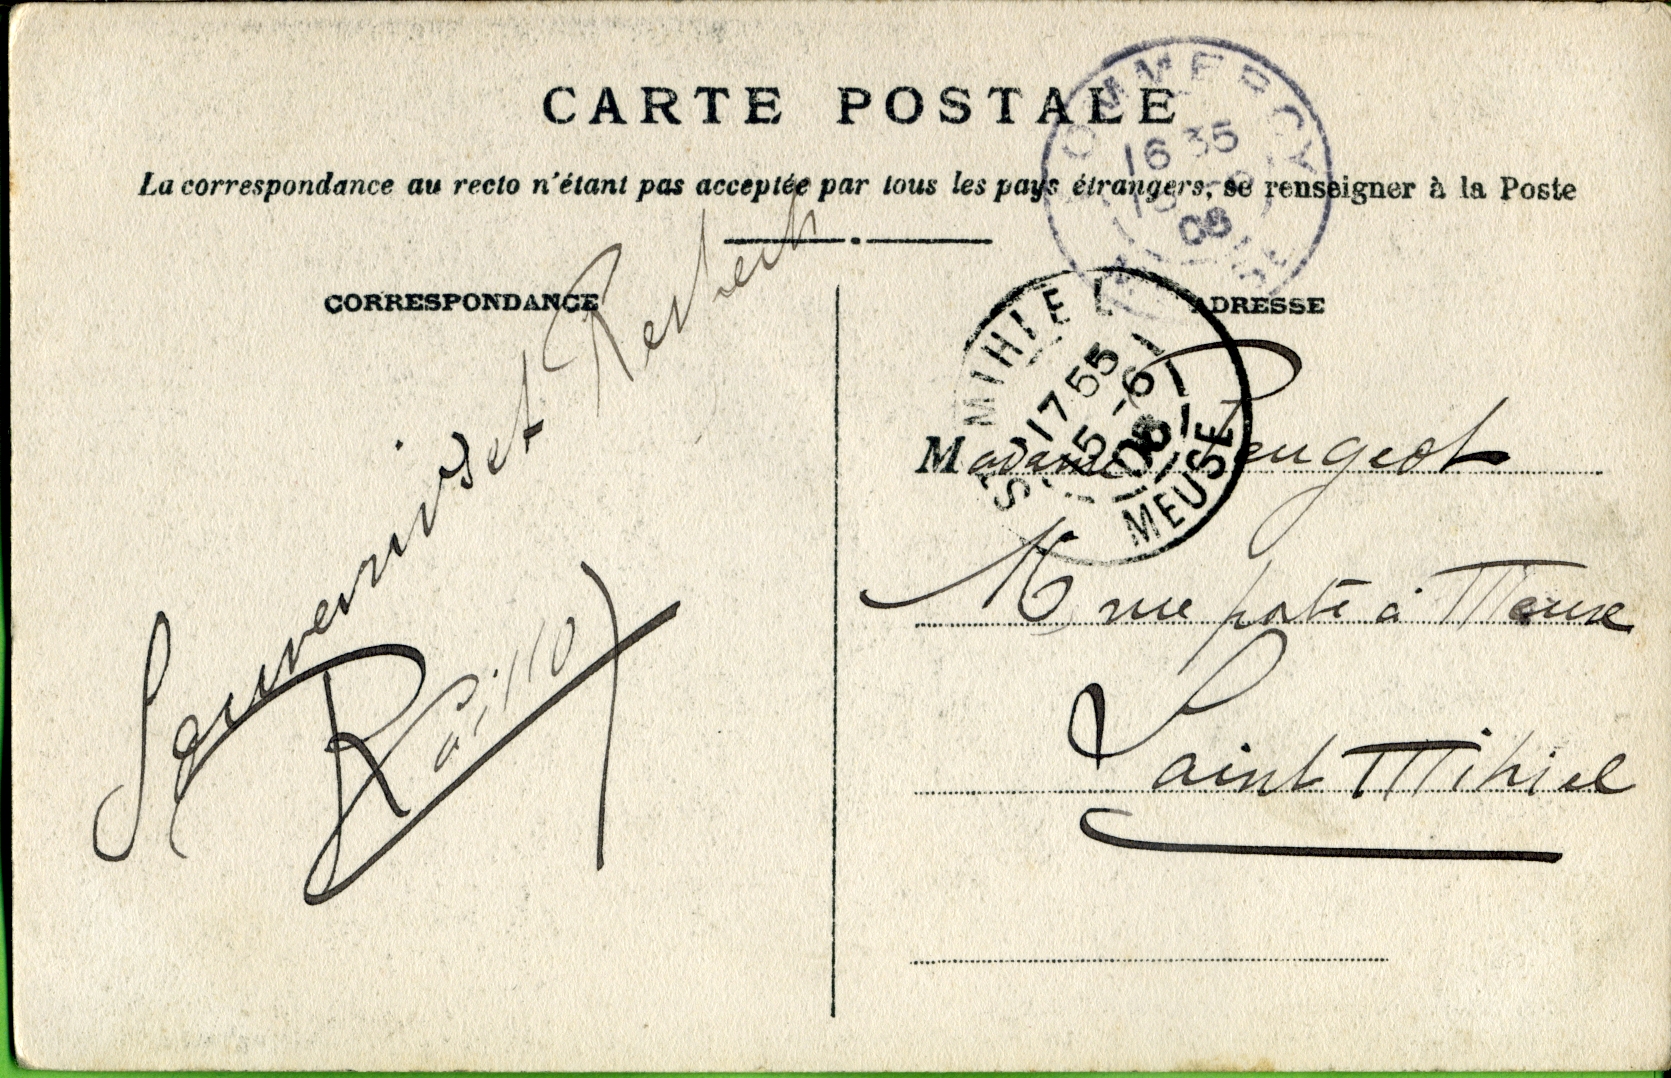 CARTE POSTALE
La correspondance au recto n'étant pas acceptée par tous les pays étrangers, se renseigner à la Poste
CORRESPONDANCE
ADRESSE
COMMERCY
16 35
08
ST MIHIEL
17 55
15 -6
08
MEUSE
Souvenirs et Respects
Madame Peugeot
rue porte à Meuse
Saint Mihiel